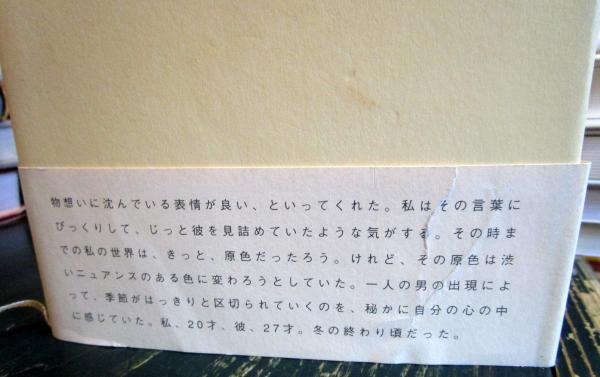 物想いに沈んでいる表情が良い、といってくれた。私はその言葉に
びっくりして、じっと彼を見詰めていたような気がする。その時ま
での私の世界は、きっと、原色だったろう。けれど、その原色は渋
いニュアンスのある色に変わろうとしていた。一人の男の出現によ
って、季節がはっきりと区切られていくのを、秘かに自分の心の中
に感じていた。私、20才、彼、27才。冬の終わり頃だった。